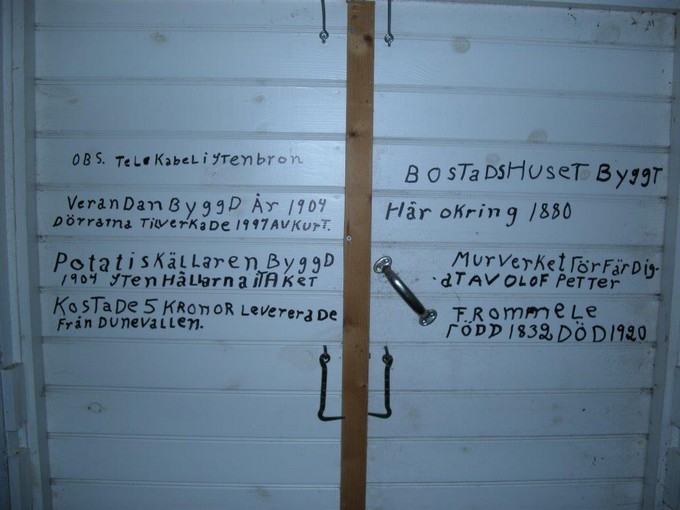 OBS. TeleKabel i YTenbron
VeranDan ByggD År 1904
Dörrarna TilverkaDe 1997 AV KurT.
PotatisKällaren ByggD
1904 YTen Hällarna i TAKet
KosTaDe 5 KRonoR LevereraDe
Från DunevaLLen.
BOSTaDSHuseT ByggT
Här oKring 1880
MurverKeT FörFärDig-
aT AV OLOF PeTTer
FRommeLe
FÖDD 1832 DÖD 1920